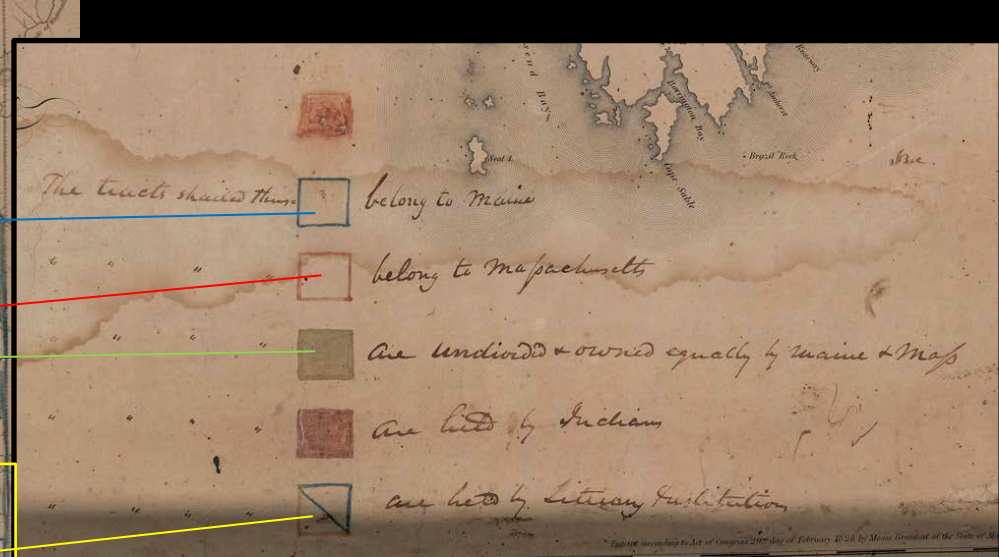 rend Bay
Barrington Bay
Roseway
Amherst
Seal I.
Brazil Rock
Cape Sable
The tracts shaded thus
belong to Maine
" " " " belong to Massachusetts
" " " " are undivided & owned equally by Maine & Mass
" " " " are held by Indians
" " " " are held by Literary Institution
Entered according to Act of Congress 29th day of February 1828 by Moses Greenleaf of the State of M